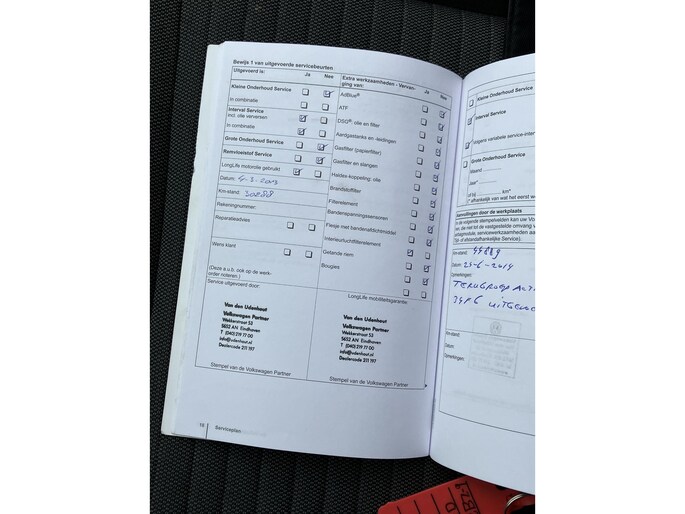 Bewijs 1 van uitgevoerde servicebeurten
Uitgevoerd is: Ja Nee
Kleine Onderhoud Service
In combinatie
Interval Service
incl. olie verversen
In combinatie
Grote Onderhoud Service
Remvloeistof Service
LongLife motorolie gebruikt
Datum:
Km-stand: 30888
Rekeningnummer:
Reparatieadvies
Wens klant
(Deze a.u.b. ook op de werk-
order noteren.)
Service uitgevoerd door:
Van den Udenhout
Volkswagen Partner
Wekkerstraat 53
5652 AN Eindhoven
T (040) 219 77 00
info@udenhout.nl
Dealercode 211 197
Stempel van de Volkswagen Partner
Extra werkzaamheden - Vervan-
ging van: Ja Nee
AdBlue®
ATF
DSG®: olie en filter
Aardgastanks en -leidingen
Gasfilter (papierfilter)
Gasfilter en slangen
Haldex-koppeling: olie
Brandstoffilter
Filterelement
Bandenspanningssensoren
Flesje met bandenafdichtmiddel
Interieurluchtfilterelement
Getande riem
Bougies
LongLife mobiliteitsgarantie:
Van den Udenhout
Volkswagen Partner
Wekkerstraat 53
5652 AN Eindhoven
T (040) 219 77 00
info@udenhout.nl
Dealercode 211 197
Stempel van de Volkswagen Partner
16 Serviceplan
Kleine Onderhoud Service
Interval Service
volgens variabele service-inter
Grote Onderhoud Service
Maand
Jaar*
of bij km*
(* afhankelijk van wat het eerst w
Aanvullingen door de werkplaats
In de volgende stempelvelden kan uw Vol
Km-stand: 44889
Datum: 24-6-2014
Opmerkingen:
TERUGROEP ACTI
34F6 UITGEVOE
Km-stand:
Datum:
Opmerkingen: